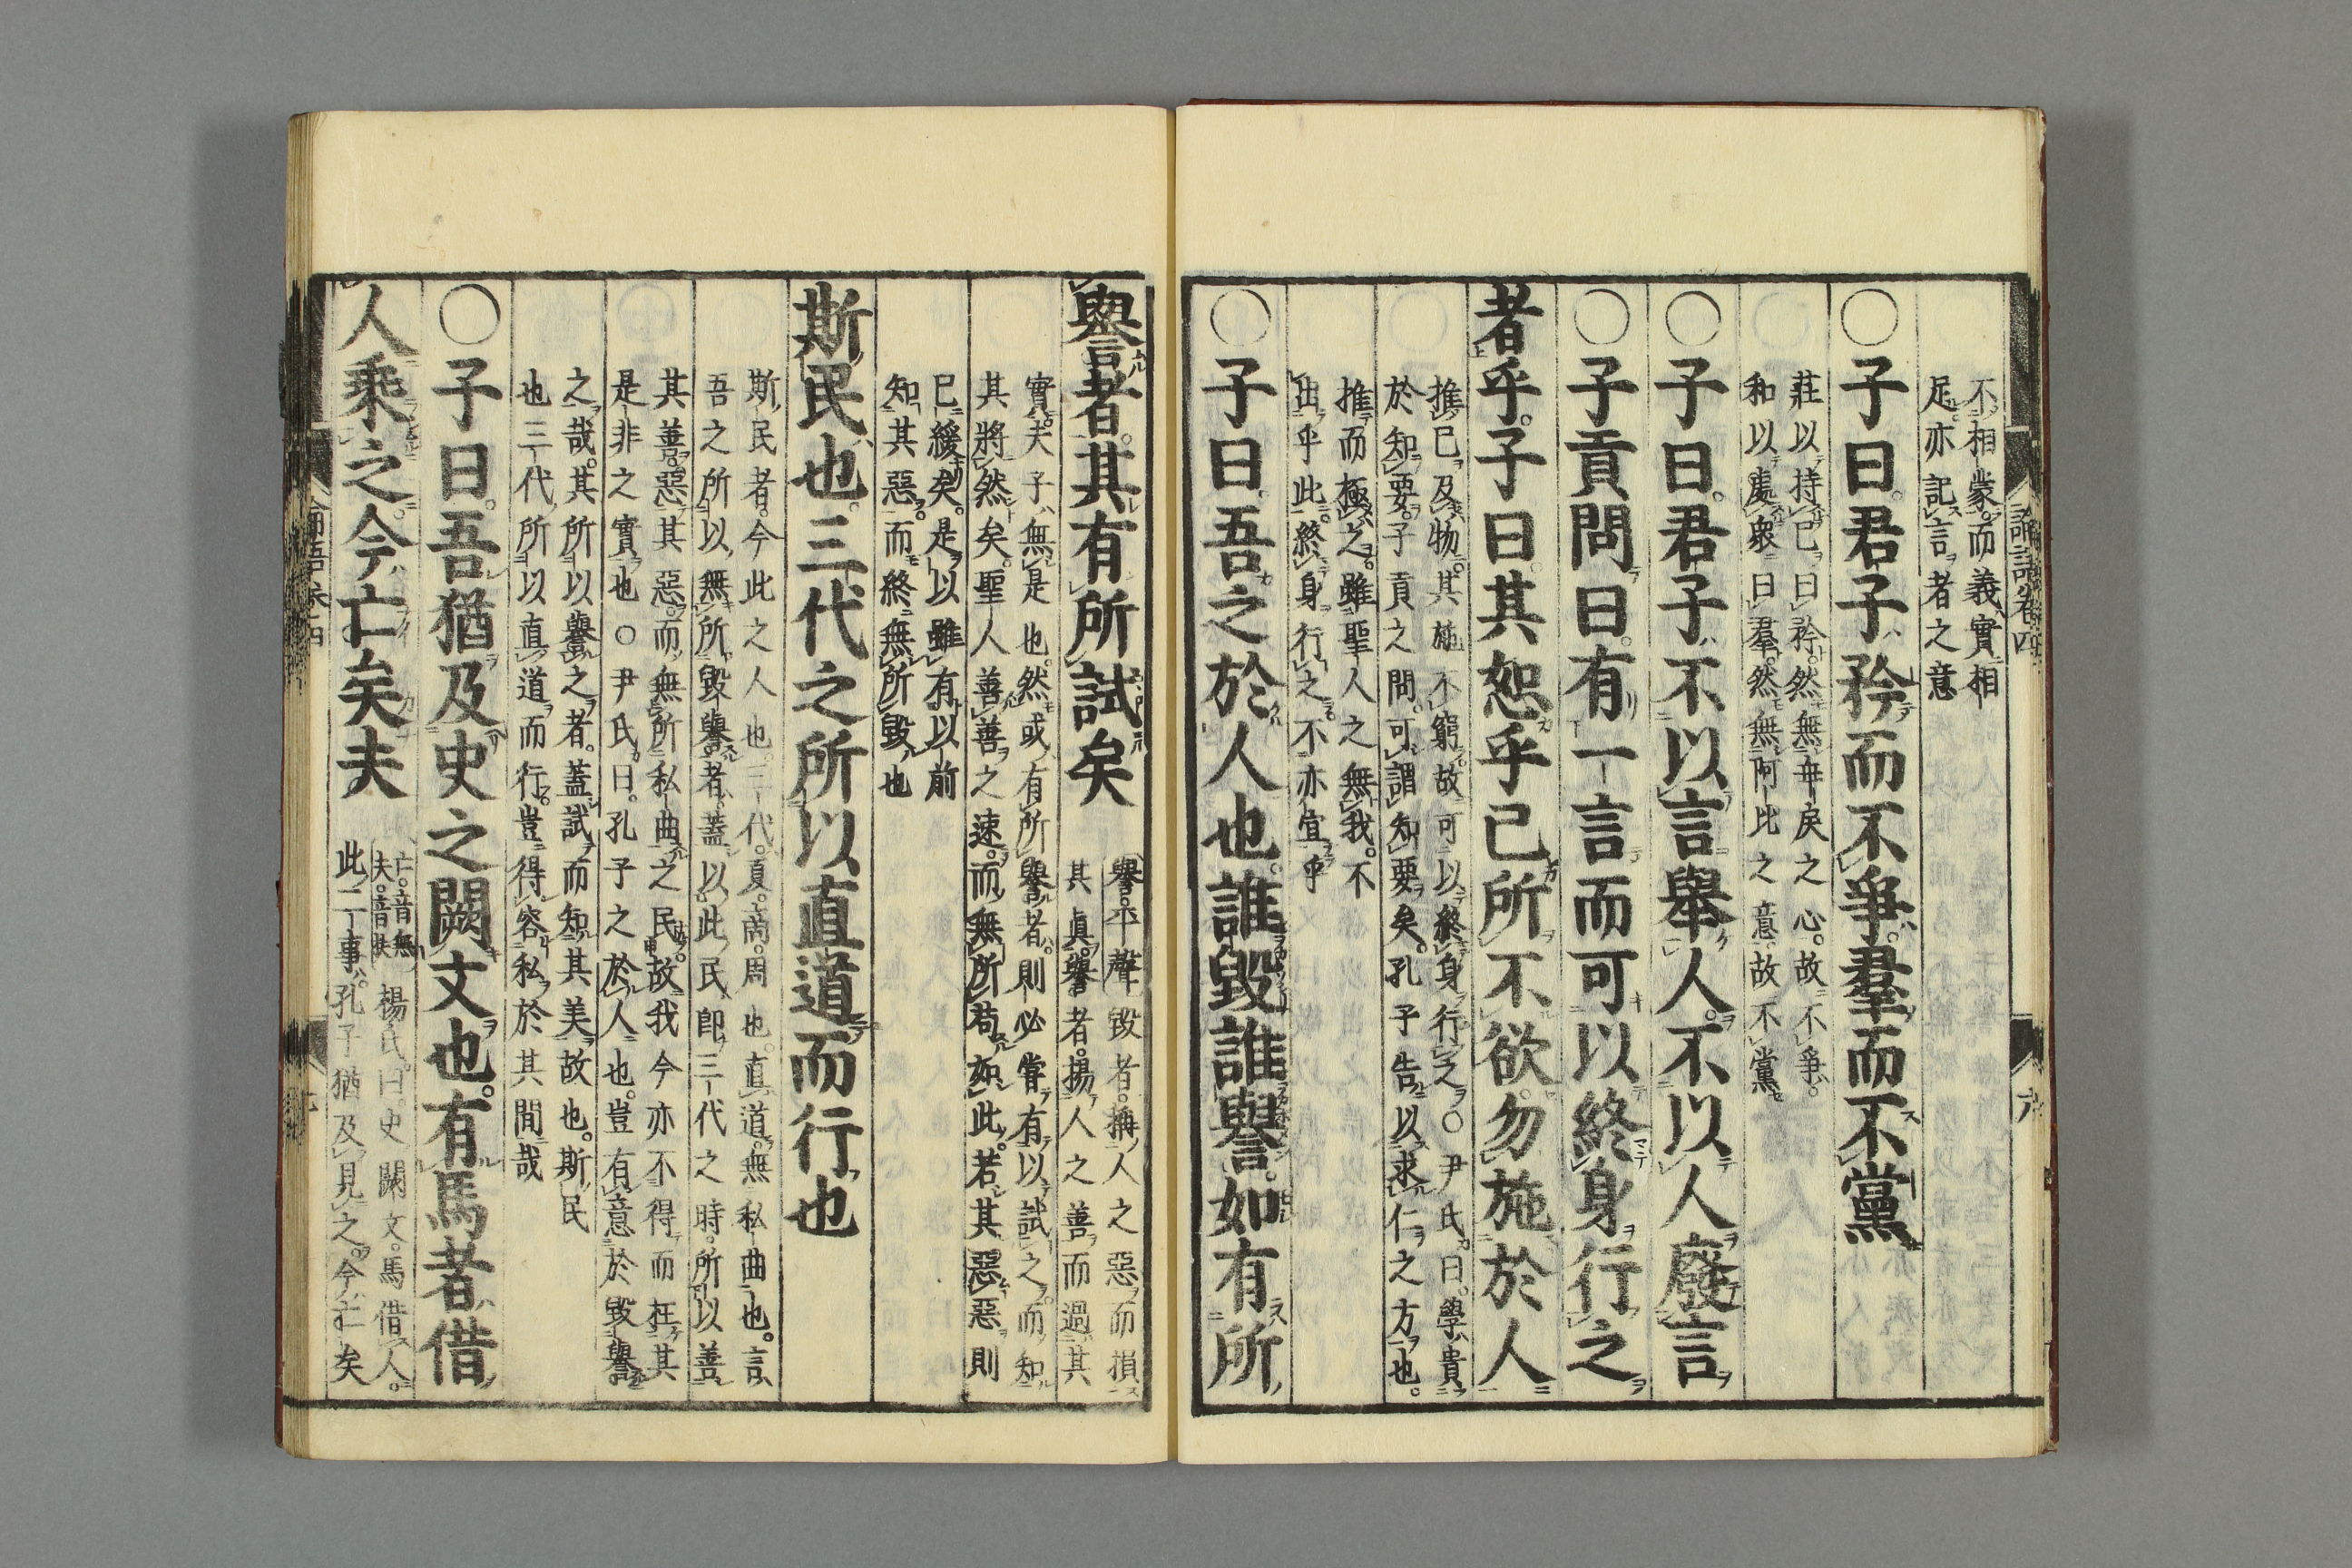 不相蒙而義實相
足亦記言者之意
○子曰君子矜而不爭羣而不黨
莊以持己曰矜然無乖戾之心故不爭
和以處衆曰羣然無阿比之意故不黨
○子曰君子不以言舉人不以人廢言
○子貢問曰有一言而可以終身行之
者乎子曰其恕乎己所不欲勿施於人
推己及物其施不窮故可以終身行之○尹氏曰學貴
於知要子貢之問可謂知要矣孔子告以求仁之方也
推而極之雖聖人之無我不
出乎此終身行之不亦宜乎
○子曰吾之於人也誰毀誰譽如有所
論語卷四
六
譽者其有所試矣
譽平聲毀者稱人之惡而損
其眞譽者揚人之善而過其
實夫子無是也然或有所譽者則必嘗有以試之而知
其將然矣聖人善善之速而無所苟如此若其惡惡則
已緩矣是以雖有以前
知其惡而終無所毀也
斯民也三代之所以直道而行也
斯民者今此之人也三代夏商周也直道無私曲也言
吾之所以無所毀譽者蓋以此民即三代之時所以善
其善惡其惡而無所私曲之民故我今亦不得而枉其
是非之實也○尹氏曰孔子之於人也豈有意於毀譽
之哉其所以譽之者蓋試而知其美故也斯民
也三代所以直道而行豈得容私於其間哉
○子曰吾猶及史之闕文也有馬者借
人乘之今亡矣夫
亡音無
夫音扶
楊氏曰史闕文馬借人
此二事孔子猶及見之今亡矣
論語卷四